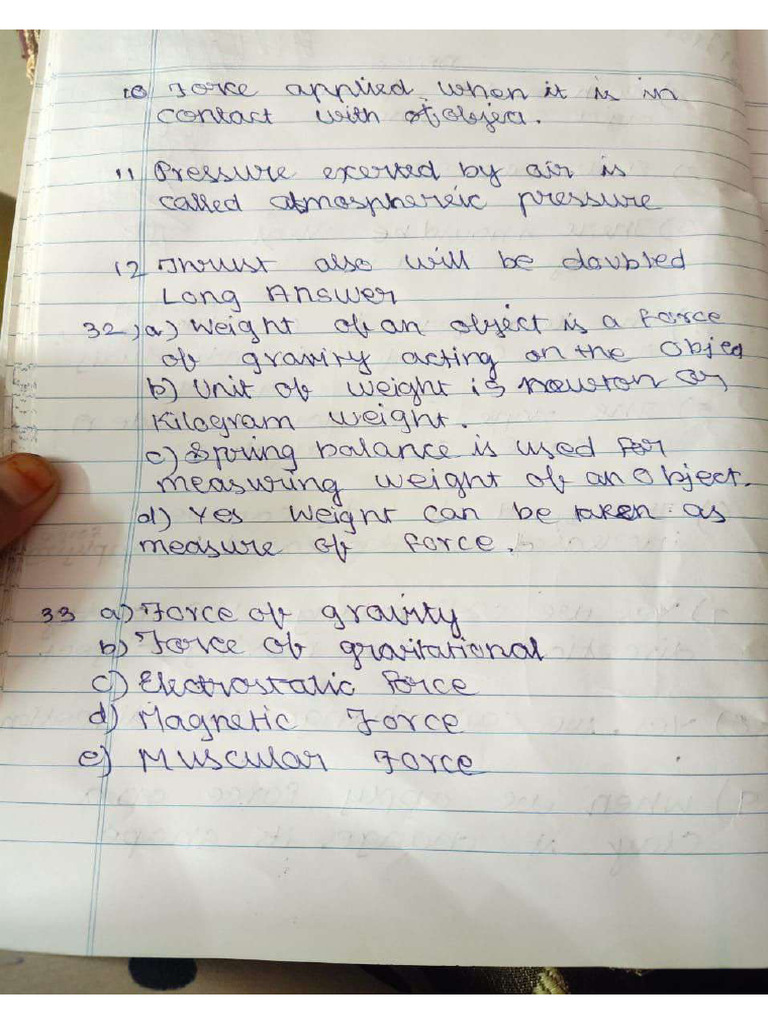 10 Force applied when it is in
contact with of objec.
11 Pressure exerted by air is
called atmosphereic pressure
12 Thrust also will be doubled
Long Answer
32) a) Weight of an object is a force
of gravity acting on the objec
b) Unit of weight is newton or
Kilogram weight.
c) Spring balance is used for
measuring weight of an object.
d) Yes weight can be taken as
measure of force.
33 a) Force of gravity
b) Force of gravitational
c) Electrostatic force
d) Magnetic Force
e) Muscular Force